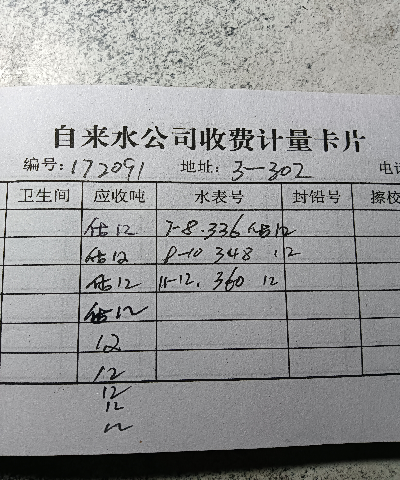 自来水公司收费计量卡片
编号: 172091 地址: 3-302 电话
卫生间 应收吨 水表号 封铅号 擦校
估12 7-8.336 估12
估12 9-10 348 12
估12 11-12. 360 12
估12
12
12
12
12
12